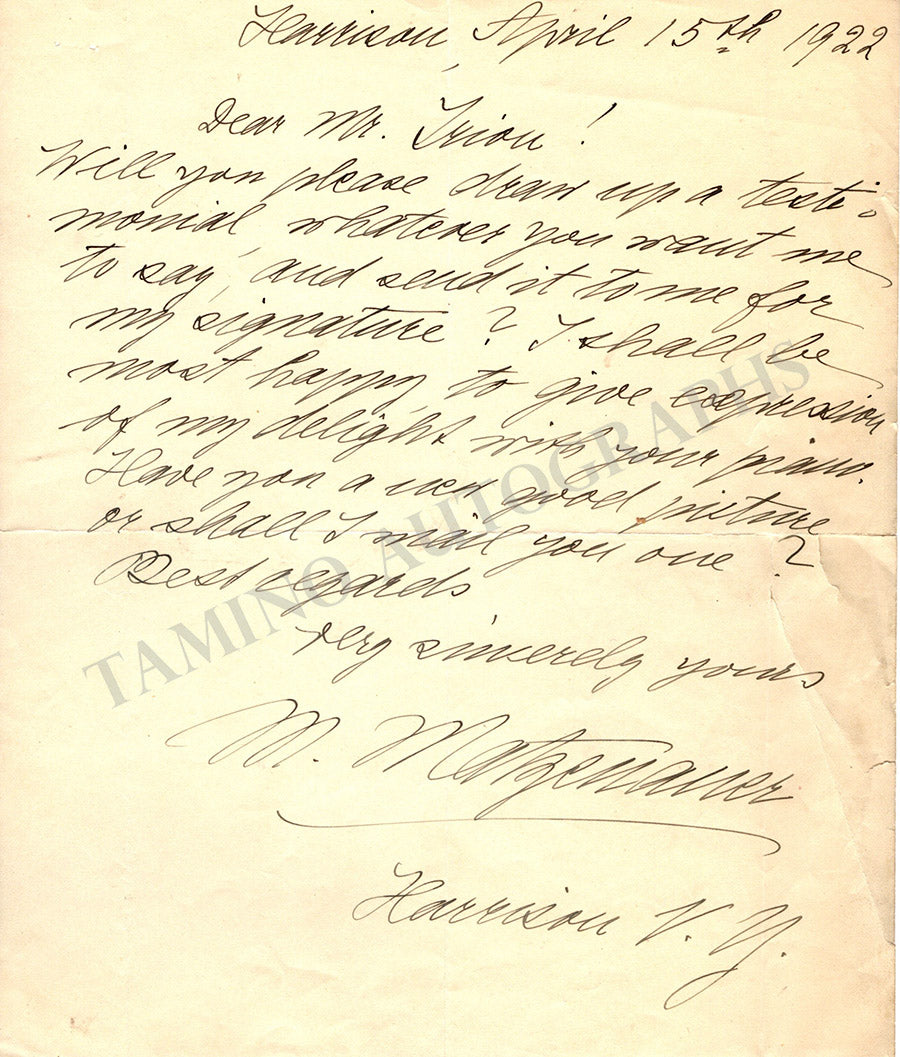 Harrison, April 15th 1922
Dear Mr. Irion!
Will you please draw up a testi-
monial, whatever you want me
to say, and send it to me for
my signature? I shall be
most happy, to give expression
of my delight with your piano.
Have you a very good picture
or shall I mail you one?
Best regards
very sincerely yours
M. Matzenauer
Harrison N. Y.
TAMINO AUTOGRAPHS